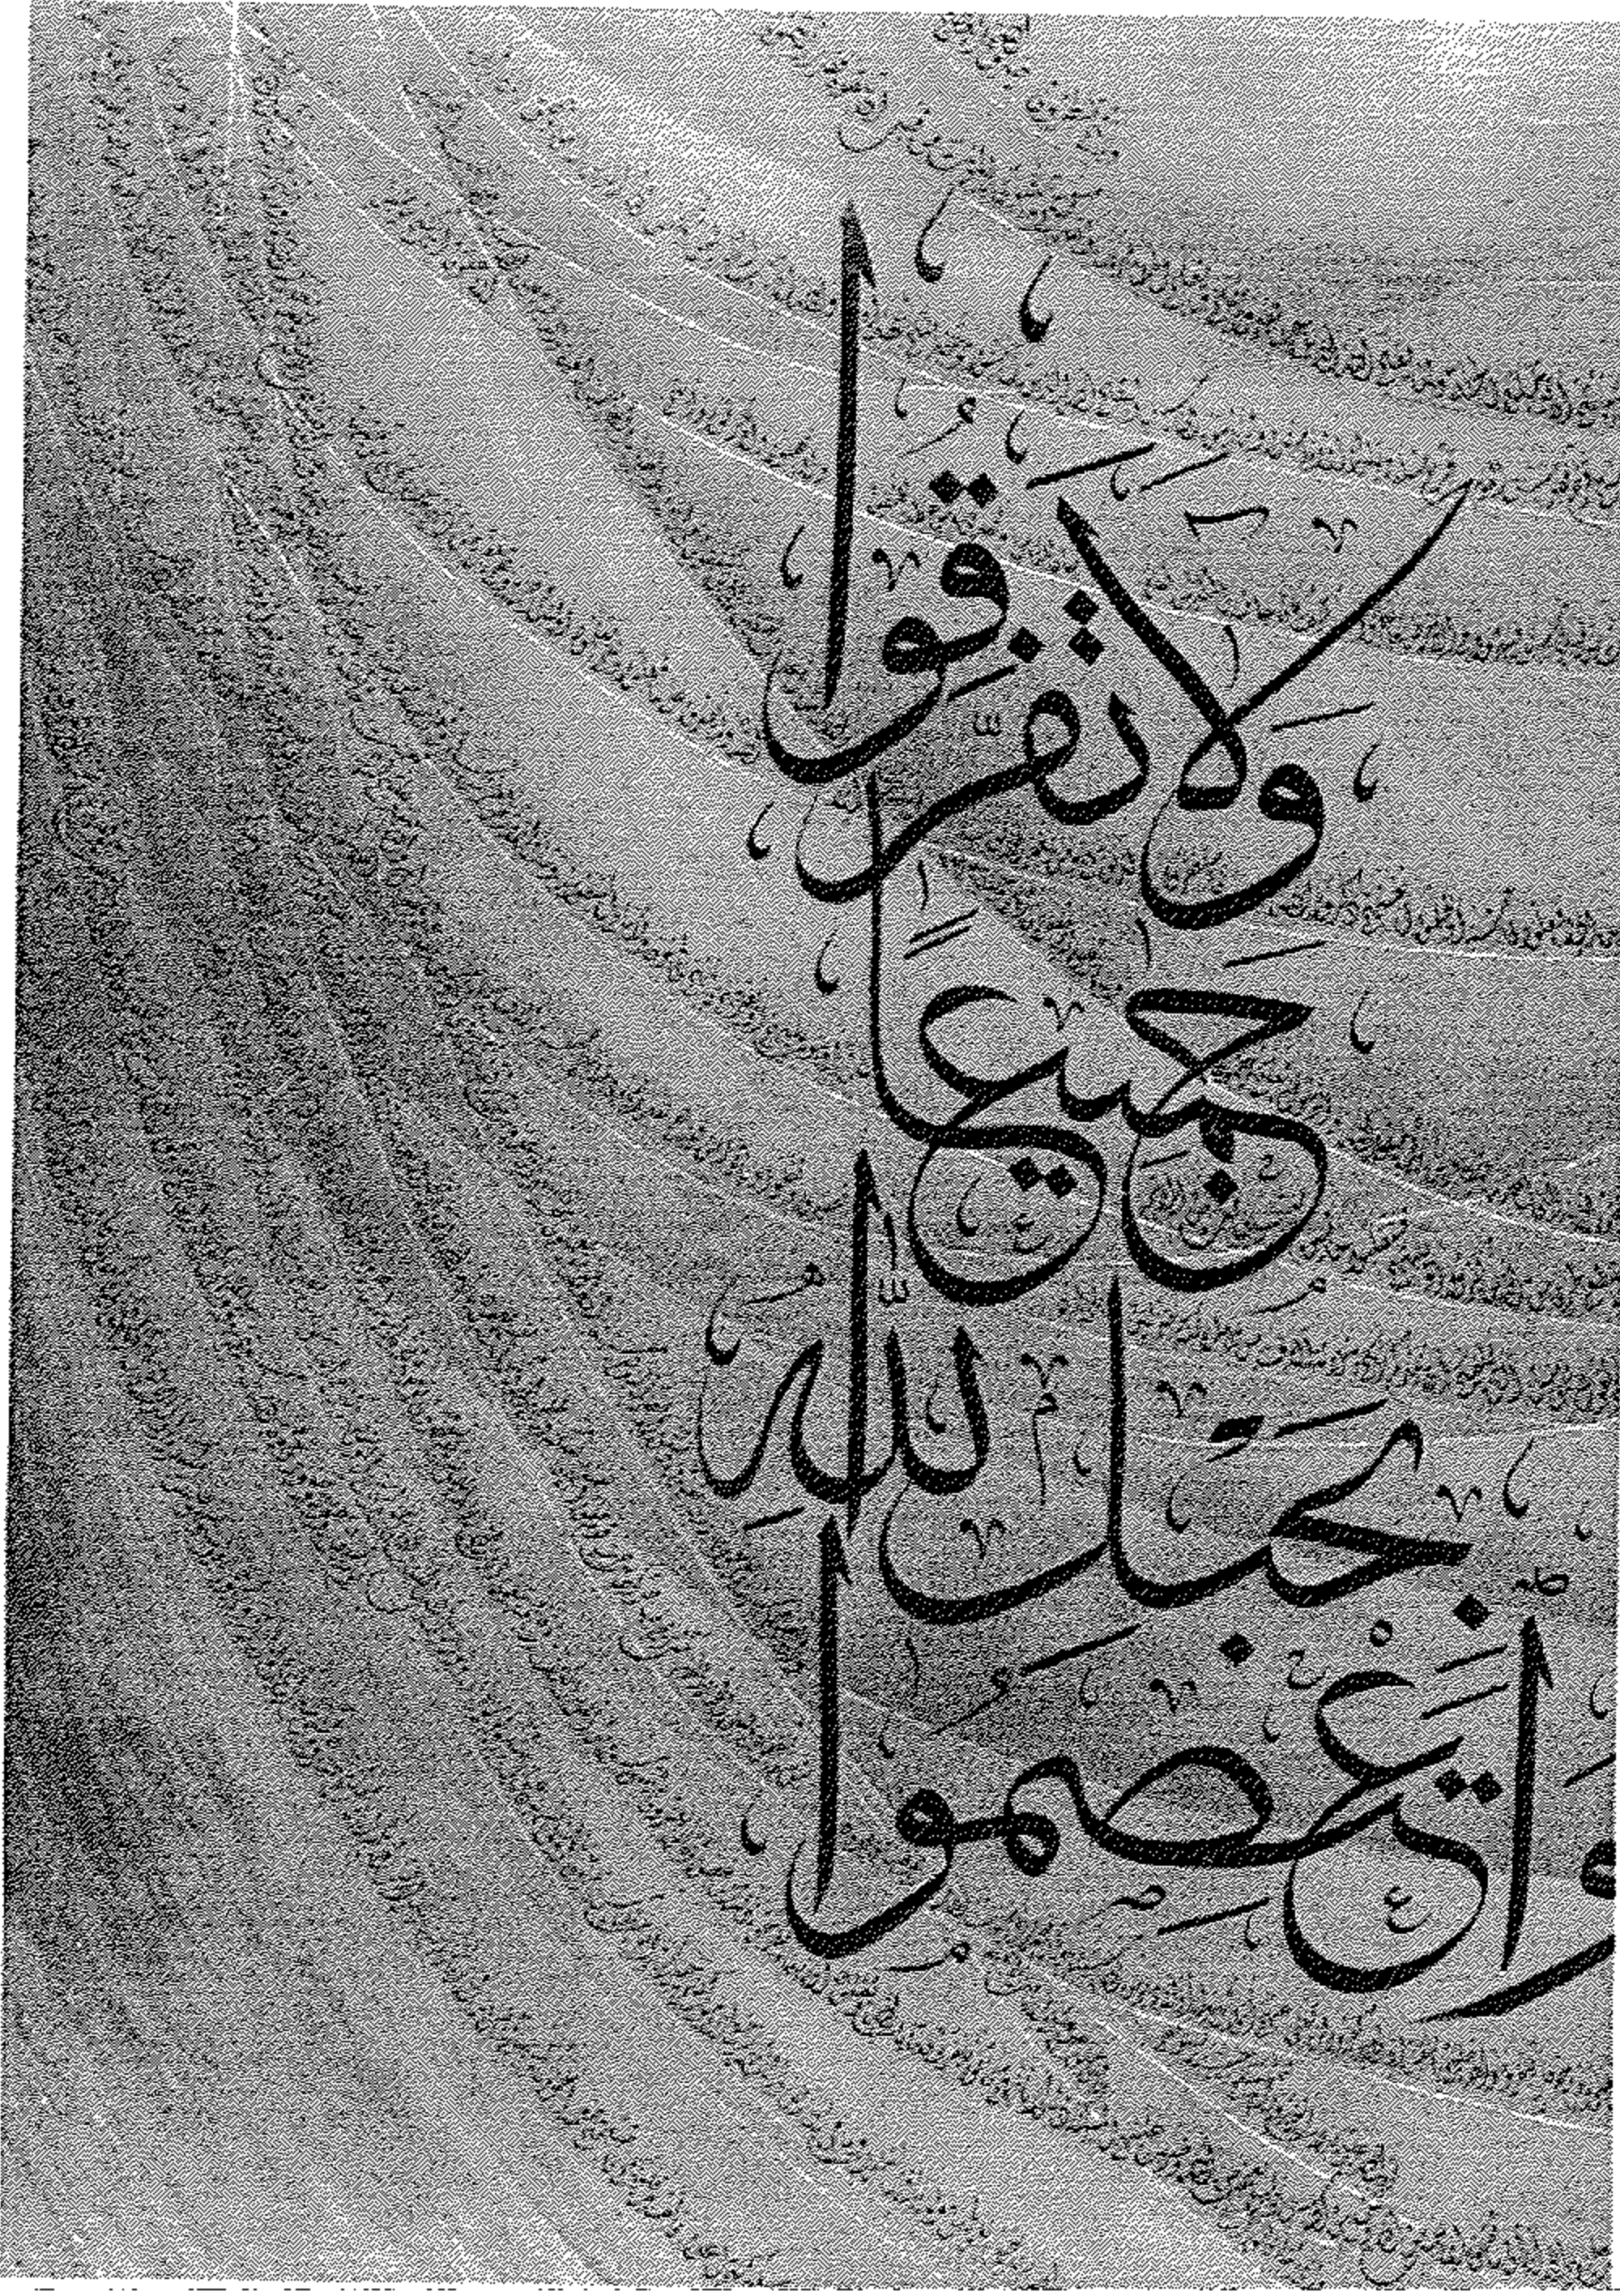 واعتصموا
بحبل الله
جميعا
ولا تفرقوا